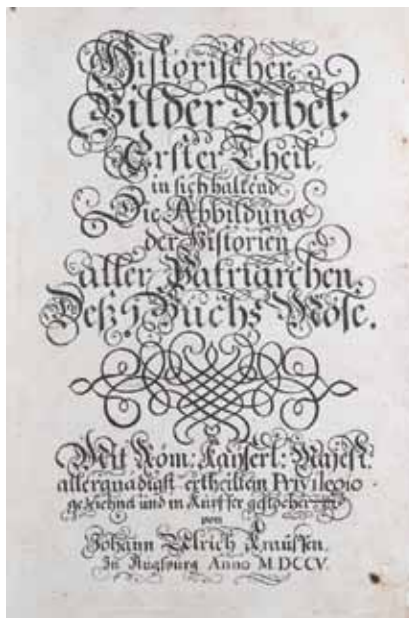 Historischer
Bilder Bibel
Erster Theil,
in sich haltend
Die Abbildung
der Historien
aller Patriarchen,
Deß I Buchs Mose.
Mit Röm: Kaÿserl: Majest.
allergnädigst ertheiltem Privilegio
gezeichnet und in Kupffer gestochen
von
Johann Ulrich Kraussen.
In Augspurg Anno MDCCV.